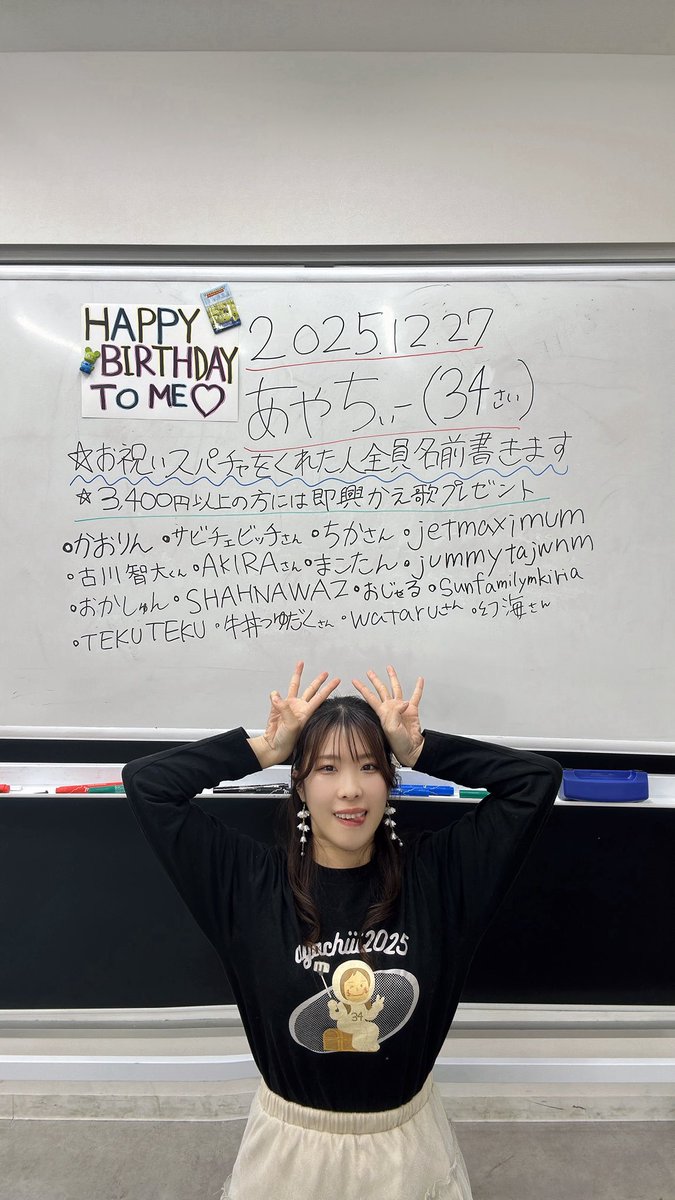 HAPPY
BIRTHDAY
TO ME♡
2025.12.27
あやちぃー(34さい)
☆お祝いスパチャをくれた人全員名前書きます
☆3,400円以上の方には即興かえ歌プレゼント
•かおりん •サビチェビッチさん •ちかさん •jetmaximum
•古川智大くん •AKIRAさん •まこたん •jummytajwnm
•おかしゅん •SHAHNAWAZ •おじゃる •Sunfamilymkiria
•TEKUTEKU •牛丼つゆだくさん •wataruさん •幻海さん
ayachiii2025
34